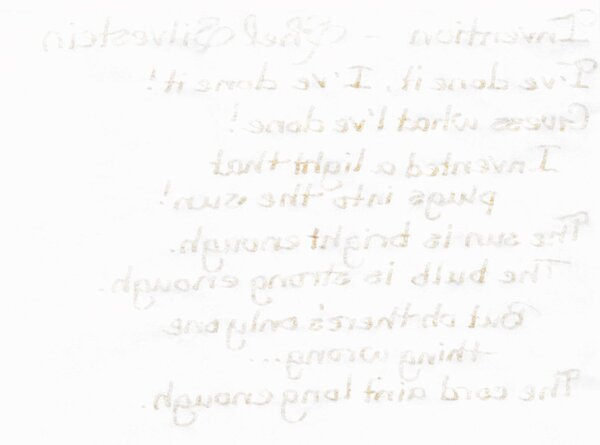 Invention - Shel Silvestein
I've done it, I've done it!
Guess what I've done!
I invented a light that
plugs into the sun!
The sun is bright enough.
The bulb is strong enough.
But oh there's only one
thing wrong...
The cord ain't long enough.